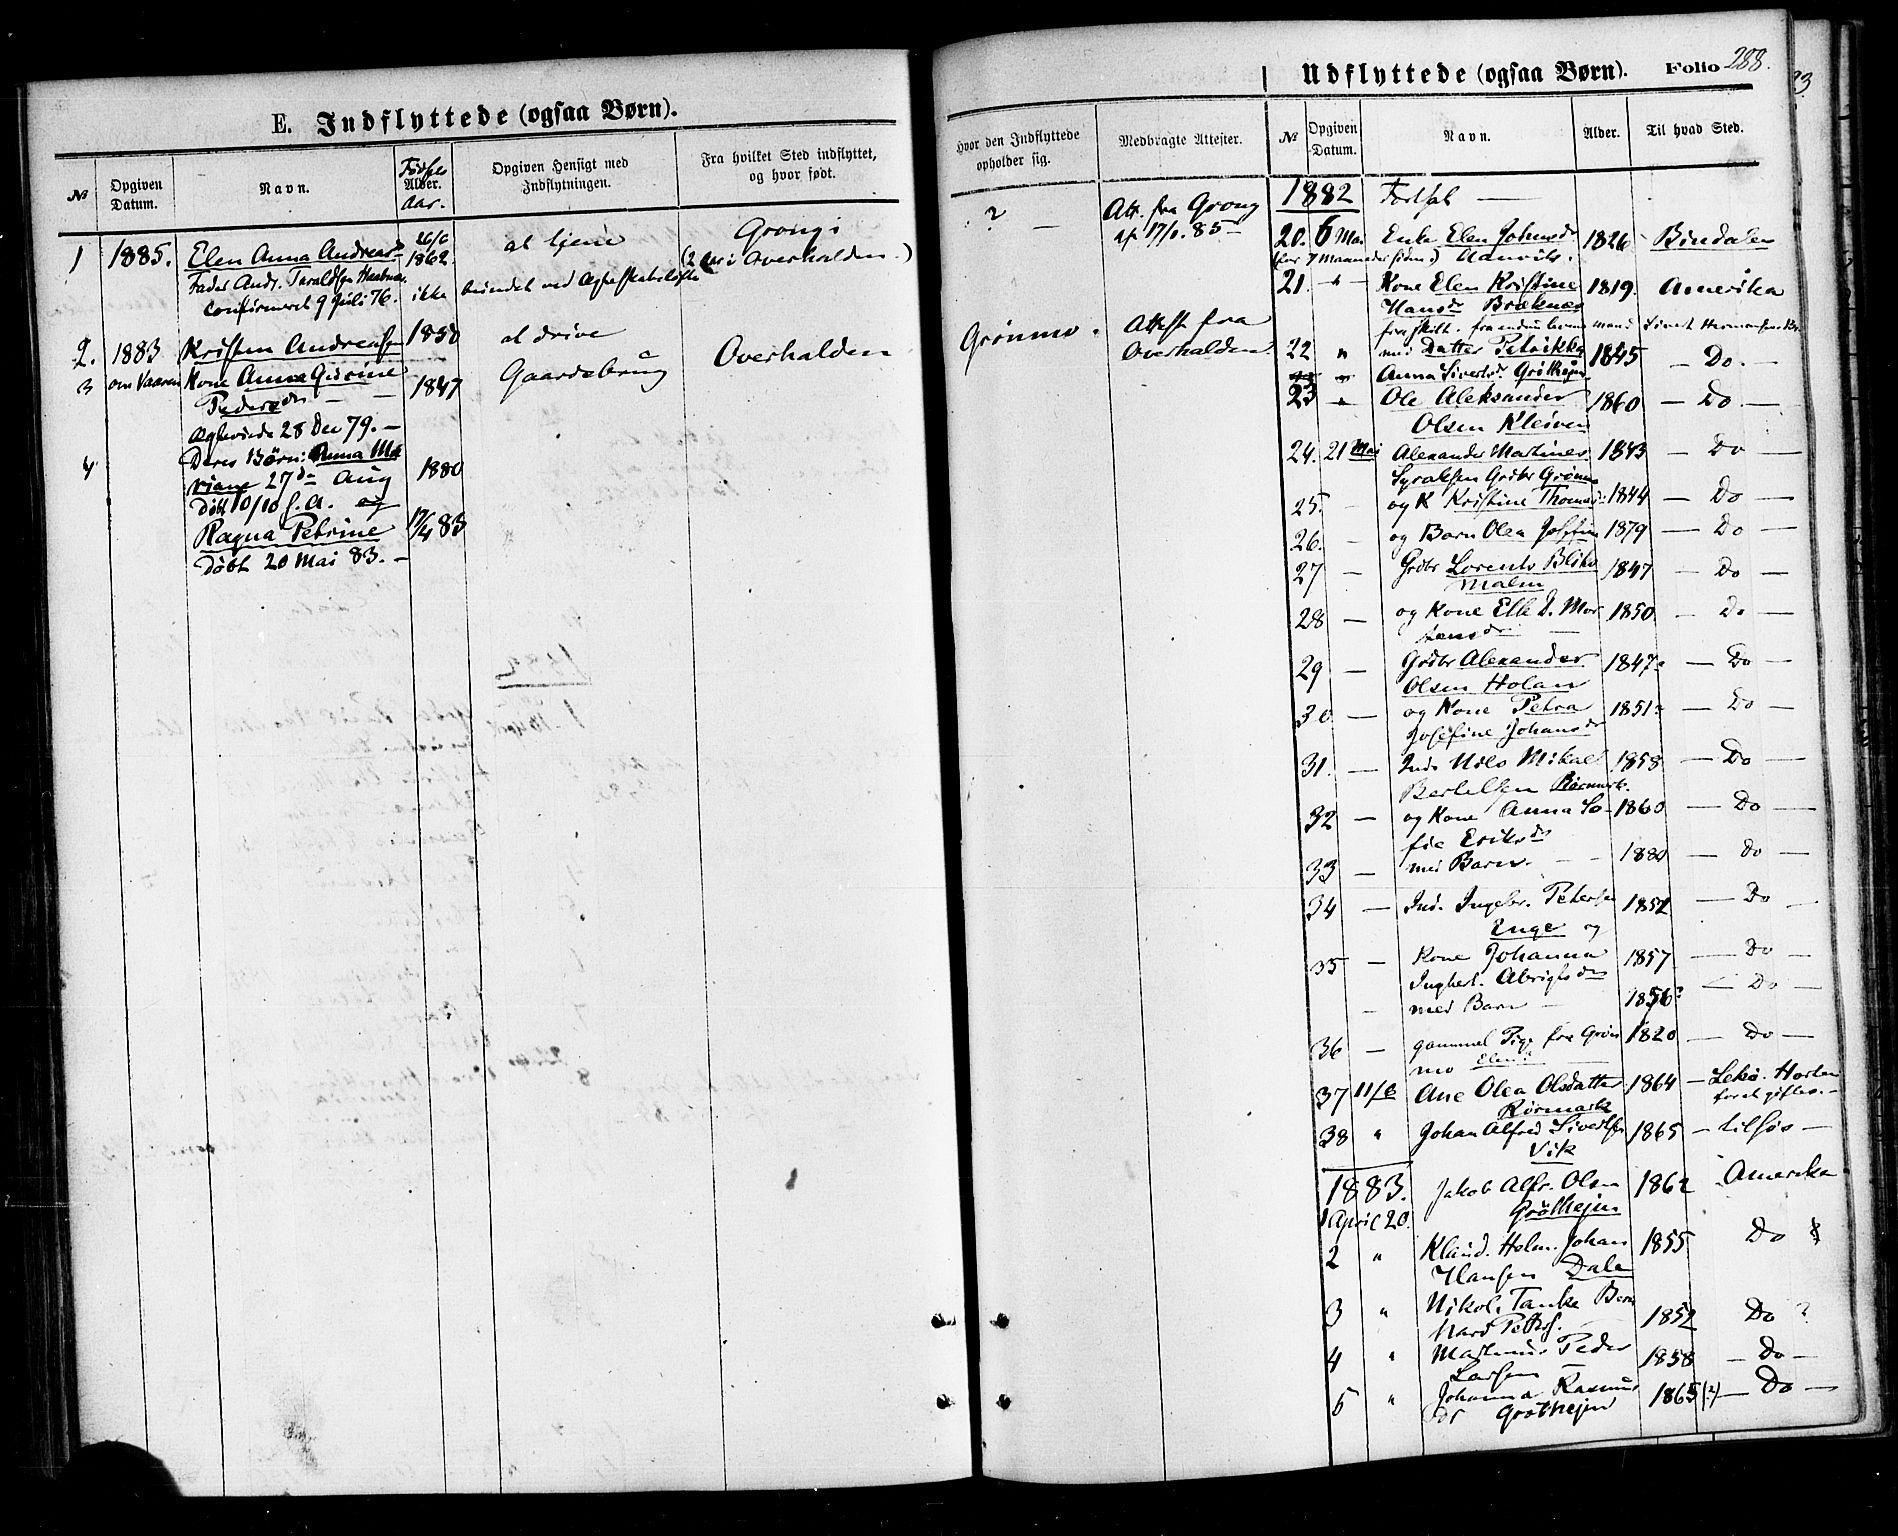 E. Indflyttede (ogsaa Børn).
№ Opgiven Datum. Navn. Fødsels Alder. Aar. Opgiven Hensigt med Indflytningen. Fra hvilket Sted indflyttet, og hvor født.
1 1885. Elen Anna Andreasdr 26/6 1862. at tjene Grong i
Fader Andr. Taraldsen (2 Aar i Overhalden.)
confirmeret 9 Juli 76. ikke bundet ved Ægteskabsløfte
2. 1883 Kristen Andreassen 1850 at drive Overhalden
3 om Vaaren Kone Anna Gurine 1847 Gaardsbrug
Pedersdr
Ægteviede 28 Dec 79.
4 Deres Børn: Anna Ma
riane 27de Aug 1880
Døbt 10/10 s. A. og
Ragna Petrine 17/4 83
Døbt 20 Mai 83.
Udflyttede (ogsaa Børn). Folio 288.
Hvor den Indflyttede opholder sig. Medbragte Attester. № Opgiven Datum. Navn. Alder. Til hvad Sted.
? — Att. fra Grong
af 17/1. 85
Grønmo. Attest fra
Overhalden.
1882 Fortsat —
20. 6 Mai Enke Elen Johnsdr 1826 Bindalen
(for 7 Maaneder siden)
21. " — Kone Elen Kristine 1819. Amerika
Hansdr Bræknæs
fraskilt. fra
22 " med Datter Petrikke 1845 — Do. —
Anna Sivertsd. Grøthejm
23 " Ole Aleksander 1860 — Do —
Olsen Kleiven
24. 21 Mai Alexander Martines 1843 — Do —
Grdbr Grønmo
25. — og K Kristine Thomasd: 1844 — Do —
26. — og Barn Olea Josefine 1879 — Do —
27 — Grdbr Lorents 1847 — Do —
Malm
28 — og Kone Elle D. Mor 1850. — Do —
tensdr —
29 — Grdbr Alexander 1847. — Do —
Olsen Holan
30. — og Kone Petra 1851. — Do —
Josefine Johansdr
31. — Ind. Nils Mikal 1858 — Do —
Bertelsen Rørmark.
32 — og Kone Anna So- 1860 — Do —
fie Eriksdr
33 — med Barn. — 1880 — Do —
34 — Ind. Ingebr. Petersen 1852 — Do —
Enge og
35 — Kone Johanna 1857 — Do —
Ingbert. — Do —
— med Barn — 1856?
36 — gammel Pige fra Grøn 1820 — Do —
mo
37 11/6 Ane Olea Olsdatter 1864 — Lekø. Horten
Rørmark for at giftes. —
38 " Johan Alfred Sivertsen 1865 — tilsøs —
Vik
1883. Jakob Alfr. Olsen 1862 Amerika
1 April 20. Grøthejm
2 " Klaud. Helm. Johan 1855 Do
Hansen Dale
3 " Nikol. Tanke Bern 1852 Do ?
hard Peters.
4 " Martinus Peder 1858 — Do —
Larsen
5 " Johanna Rasmus 1865 (?) — Do —
dr Grøthejm